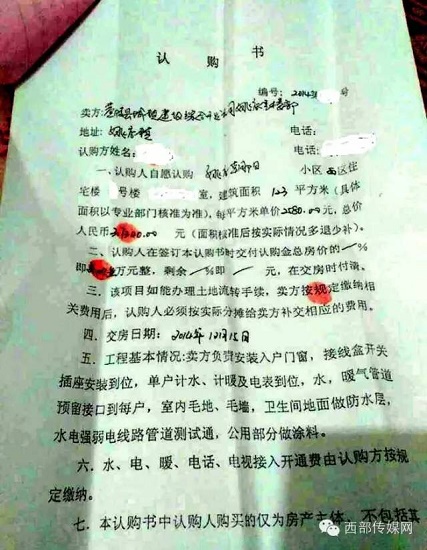 认购书
编号：201431 号
卖方：
地址：
电话：
认购方姓名：
电话：
一、认购人自愿认购 小区西区住
宅楼 号楼 室，建筑面积 123 平方米（具体
面积以专业部门核准为准），每平方米单价2580.00元，总价
人民币 元（面积核准后按实际情况多退少补）。
二、认购人在签订本认购书时交付认购金总房价的／%
即 万元整，剩余／%即／元，在交房时付清。
三、该项目如能办理土地流转手续，卖方按规定缴纳相
关费用后，认购人必须按实际分摊给卖方补交相应的费用。
四、交房日期：2014年12月15日
五、工程基本情况：卖方负责安装入户门窗，接线盒开关
插座安装到位，单户计水、计暖及电表到位，水，暖气管道
预留接口到每户，室内毛地、毛墙，卫生间地面做防水层，
水电强弱电线路管道测试通，公用部分做涂料。
六、水、电、暖、电话、电视接入开通费由认购方按规
定缴纳。
七、本认购书中认购人购买的仅为房产主体，不包括其
西部传媒网